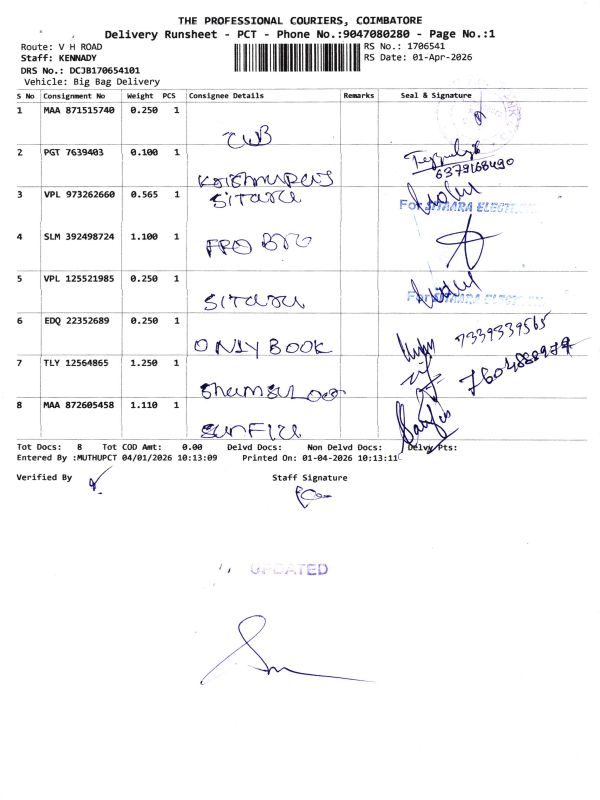 THE PROFESSIONAL COURIERS, COIMBATORE
Delivery Runsheet - PCT - Phone No.:9047080280 - Page No.:1
Route: V H ROAD
RS No.: 1706541
Staff: KENNADY
RS Date: 01-Apr-2026
DRS No.: DCJB170654101
Vehicle: Big Bag Delivery
S No Consignment No Weight PCS Consignee Details Remarks Seal & Signature
1 MAA 871515740 0.250 1
CUB
2 PGT 7639403 0.100 1
6379168490
3 VPL 973262660 0.565 1 Sitara
For SITARA ELECT
4 SLM 392498724 1.100 1
5 VPL 125521985 0.250 1
Sitara
For SITARA ELECT
6 EDQ 22352689 0.250 1
ONLY BOOK
7339339565
7 TLY 12564865 1.250 1
7604888979
8 MAA 872605458 1.110 1
Tot Docs: 8 Tot COD Amt: 0.00 Delvd Docs: Non Delvd Docs: Delvy Pts:
Entered By :MUTHUPCT 04/01/2026 10:13:09 Printed On: 01-04-2026 10:13:11
Verified By Staff Signature
UPDATED